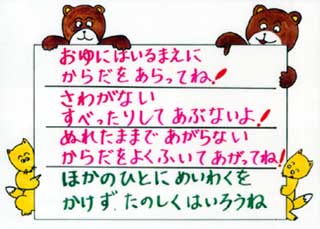 おゆにはいるまえに
からだをあらってね!
さわがない
すべったりしてあぶないよ!
ぬれたままであがらない
からだをよくふいてあがってね!
ほかのひとにめいわくを
かけず.たのしくはいろうね